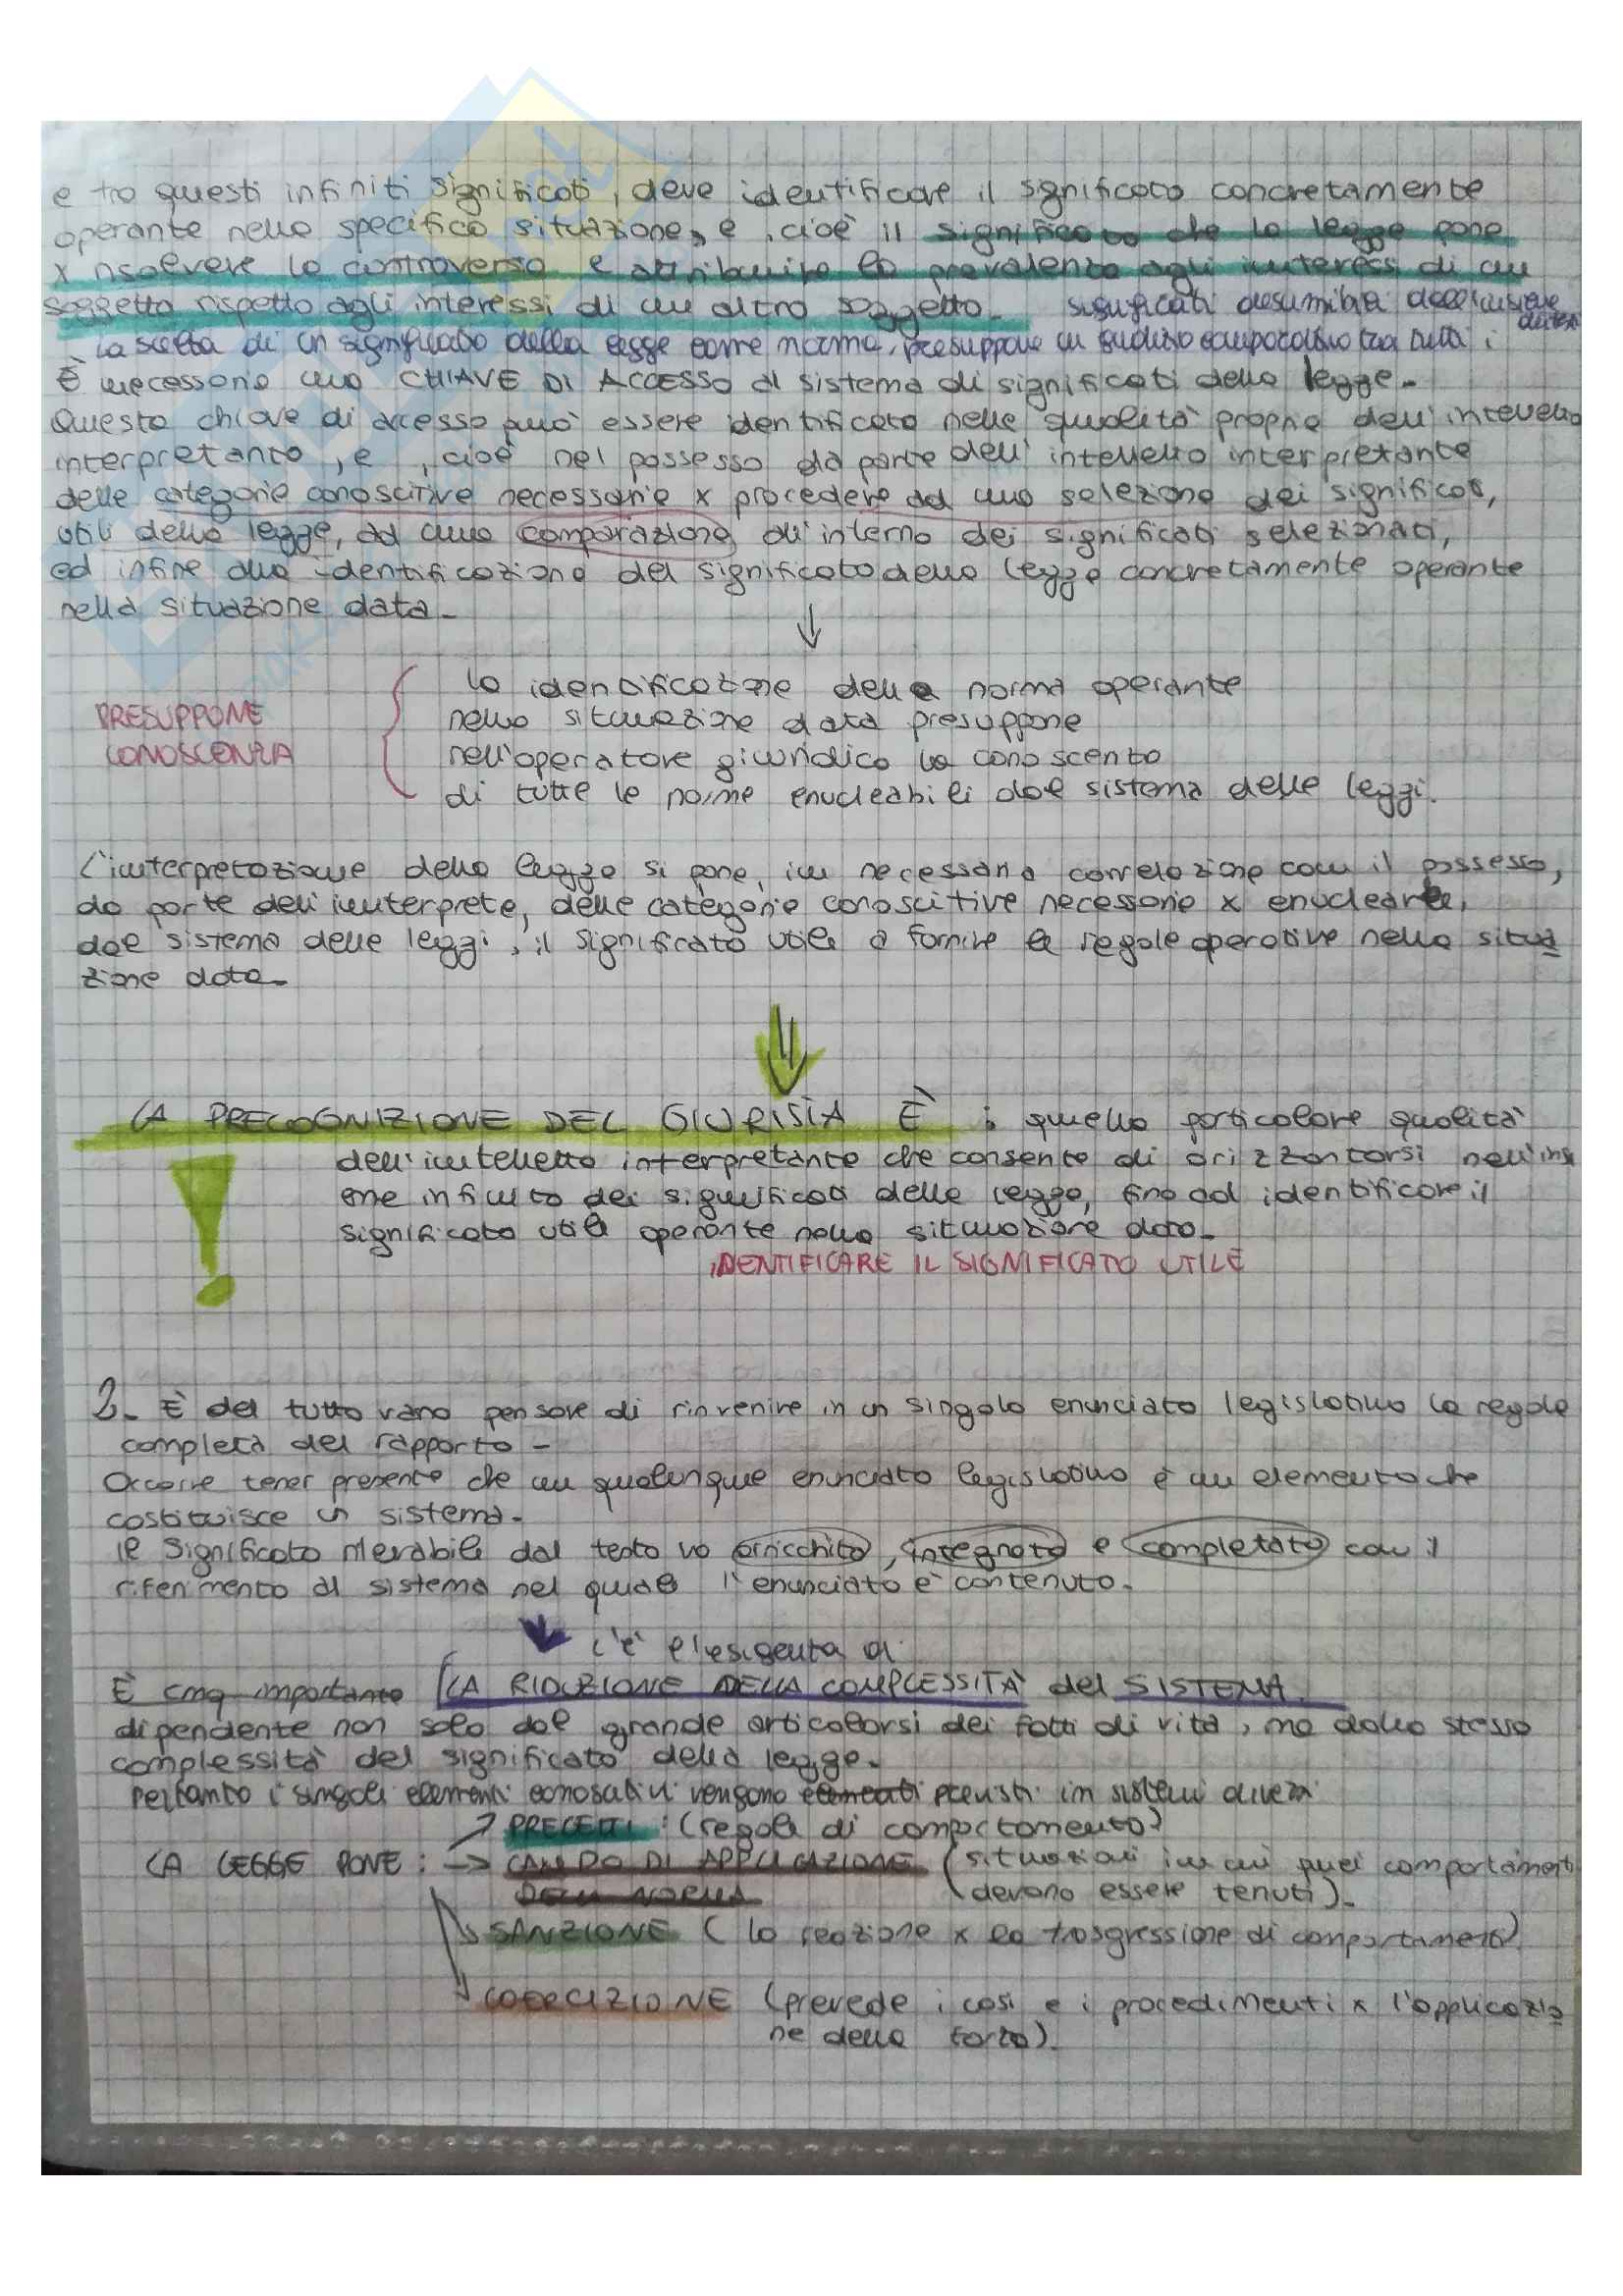 e tra questi infiniti significati, deve identificare il significato concretamente
operante nella specifica situazione, e, cioè il significato che la legge pone
x risolvere la controversia e attribuire la prevalenza agli interessi di un
soggetto rispetto agli interessi di un altro soggetto. significati desumibili dall'insieme
La scelta di un significato della legge come norma, presuppone un giudizio comparativo tra tutti i
È necessario una CHIAVE DI ACCESSO al sistema di significati della legge.
Questa chiave di accesso può essere identificata nelle qualità proprie dell'intelletto
interpretante, e, cioè nel possesso da parte dell'intelletto interpretante
delle categorie conoscitive necessarie x procedere ad una selezione dei significati,
utili della legge, ad una comparazione all'interno dei significati selezionati,
ed infine alla identificazione del significato della legge concretamente operante
nella situazione data.
↓
la identificazione della norma operante
nella situazione data presuppone
PRESUPPONE
CONOSCENZA
nell'operatore giuridico la conoscenza
di tutte le norme enucleabili dal sistema delle leggi.
L'interpretazione della legge si pone, in necessaria correlazione con il possesso,
da parte dell'interprete, delle categorie conoscitive necessarie x enucleare,
dal sistema delle leggi, il significato utile a fornire le regole operative nella situa
zione data.
LA PRECOGNIZIONE DEL GIURISTA È : quella particolare qualità
dell'intelletto interpretante che consente di orizzontarsi nell'insi
eme infinito dei significati della legge, fino ad identificare il
significato utile operante nella situazione data.
IDENTIFICARE IL SIGNIFICATO UTILE
2. È del tutto vano pensare di rinvenire in un singolo enunciato legislativo la regola
completa del rapporto -
Occorre tener presente che un qualunque enunciato legislativo è un elemento che
costituisce un sistema.
Il significato rilevabile dal testo va arricchito, integrato e completato con il
riferimento al sistema nel quale l'enunciato è contenuto.
c'è l'esigenza di
È cmq importante LA RIDUZIONE DELLA COMPLESSITÀ del SISTEMA
dipendente non solo dal grande articolarsi dei fatti di vita, ma dalla stessa
complessità del significato della legge.
Pertanto i singoli elementi conoscitivi vengono elementi previsti in sistemi diversi
PRECETTI : (regole di comportamento)
LA LEGGE PONE : → CAMPO DI APPLICAZIONE (situazioni in cui quei comportamenti
DELLA NORMA devono essere tenuti).
SANZIONE ( la reazione x la trasgressione di comportamenti)
COERCIZIONE (prevede i casi e i procedimenti x l'applicazio
ne della forza).